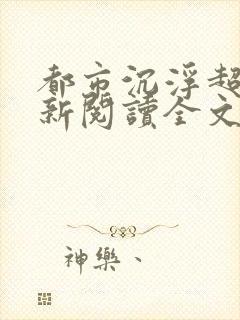 都市沉浮超
新閱讀全文
神樂、